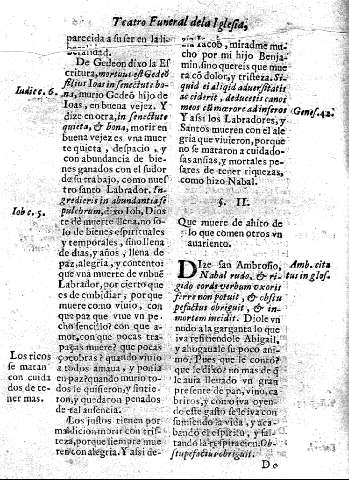 Teatro Funeral de la Iglesia,
parecida a su ser en la li-
beralidad.
De Gedeon dixo la Es
critura, mortuus est Gedeõ
filius Ioas in senectute bo-
na, murio Gedeõ hijo de
Ioas, en buena vejez. Y
dize en otra, in senectute
quieta, & bona, morir en
buena vejez es vna muer
te quieta, despacio, y
con abundancia de bie-
nes ganados con el sudor
de su trabajo, como nues
tro santo Labrador. In-
gredieris in abundantia se
pulchrum, dixo Iob, Dios
te dè muerte llena, no so-
lo de bienes espirituales
y temporales, sino llena
de dias, y años, llena de
paz, alegria, y contento:
que vna muerte de vn buẽ
Labrador, por cierto que
es de embidiar, por que
muere como viuio, con
que paz que viue vn pe-
cho sencillo? con que a-
mor, con que pocas tra-
pazas muere? que pocas
çoçobras? quando viuio
a todos amaua, y ponia
en paz? quando murio to-
dos le quisieron, y sintie-
ron, y quedaron penados
de tal ausencia.
Los justos tienen por
maldicion morir con tris-
teza, porque siempre mue
ren con alegria. Y assi de-
Iudic e. 6.
Iob c. 5.
Los ricos
se matan
con cuida
dos de te-
ner mas.
zia Iacob, miradme mu-
cho por mi hijo Benja-
min, sino quereis que mue
ra cõ dolor, y tristeza. Si-
quid ei aliqid aduersitatis
acciderit, deducetis canos
meos cũ mœrore ad inferos
Y assi los Labradores, y
Santos mueren con el ale
gria que viuieron, porque
no se mataron a cuidado-
sas ansias, y mortales pe-
sares de tener riquezas,
como hizo Nabal.
Genes. 42.
§. II.
Que muere de ahito de
lo que comen otros vn
auariento.
DIze san Ambrosio,
Nabal rudo, & ri-
gido corde verbum vxoris
ferre non potuit, & obstu
pefactus obriguit, & in-
mortem incedit. Diole vn
nudo a la garganta lo que
iva refiriendole Abigail,
y ahogauale su poco ani-
mo? Pues que le contò?
que le dixo? no mas de q̃
le auia lleuado vn gran
presente de pan, vino, ca-
britos, y como iva oyen-
do este gasto se le iva con
sumiendo la vida, y aca-
bando el espiritu, y fal-
tando la respiracion. Ob-
stupefactus obriguit.
Amb. cita
tus in glos.
Do